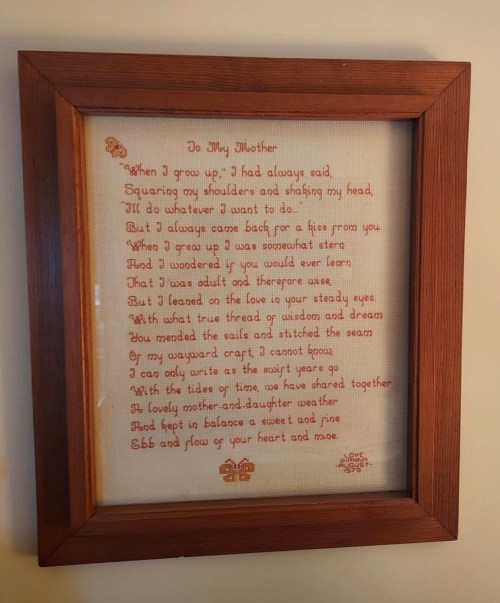 To My Mother
"When I grow up," I had always said,
Squaring my shoulders and shaking my head,
"I'll do whatever I want to do..."
But I always came back for a kiss from you.
When I grew up I was somewhat stern
And I wondered if you would ever learn
That I was adult and therefore wise,
But I leaned on the love in your steady eyes.
With what true thread of wisdom and dream
You mended the sails and stitched the seam
Of my wayward craft, I cannot know;
I can only write as the swift years go
With the tides of time, we have shared together
A lovely mother-and-daughter weather
And kept in balance a sweet and fine
Ebb and flow of your heart and mine.
LOVE
DIANNA
-AUGUST-
1979